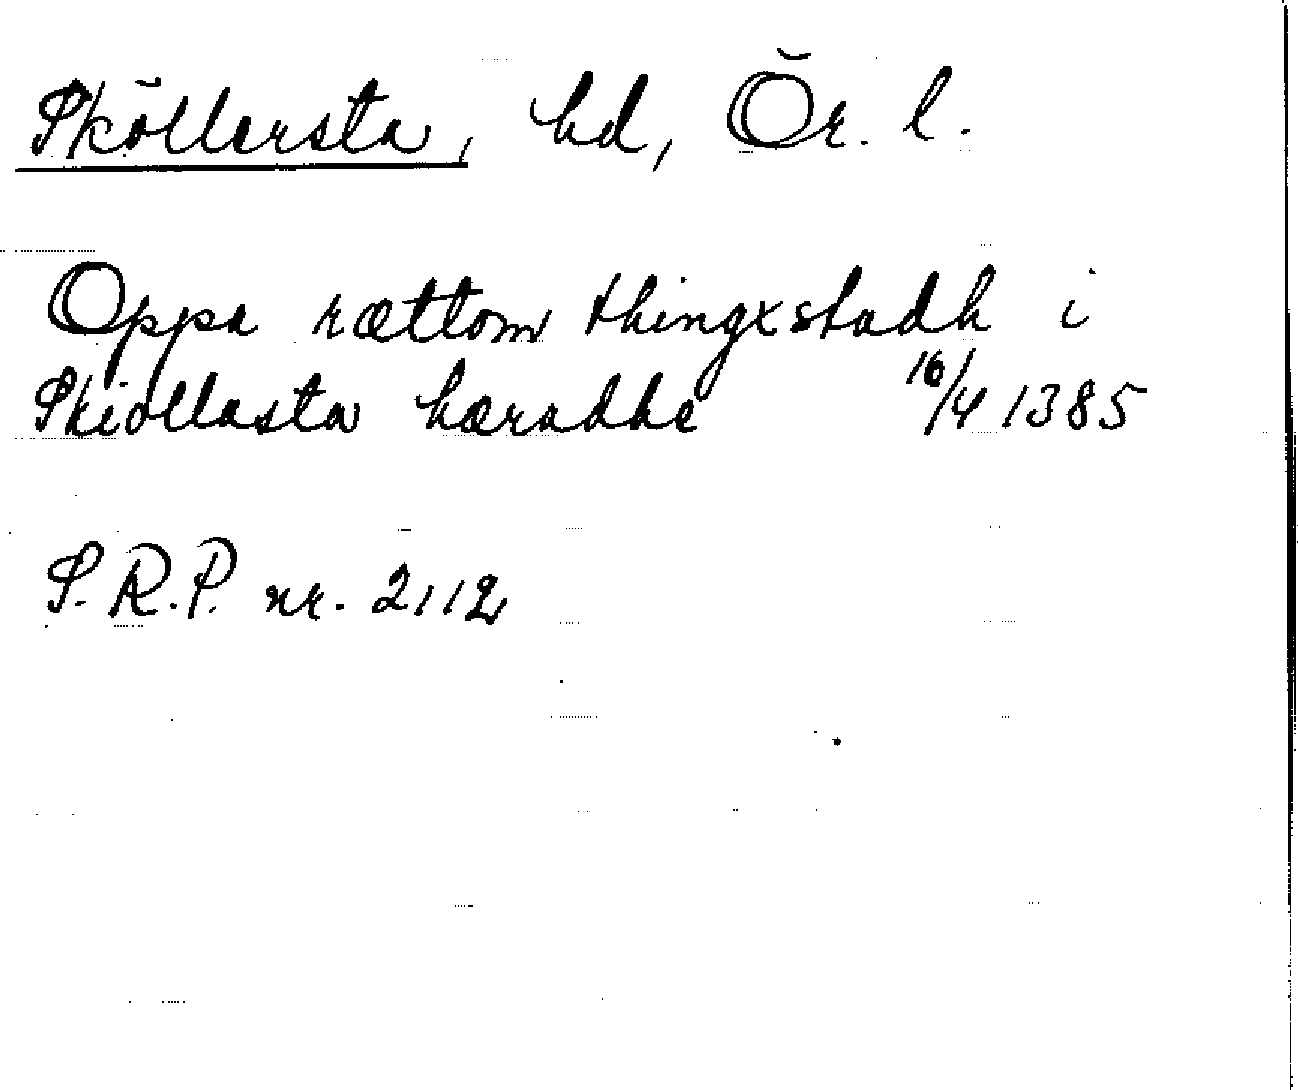 Sköllersta, hd, Ör. l.
Oppa rættom thingxstadh i
Skiöllasta hæradhe 16/4 1385
S.R.P. nr. 2112